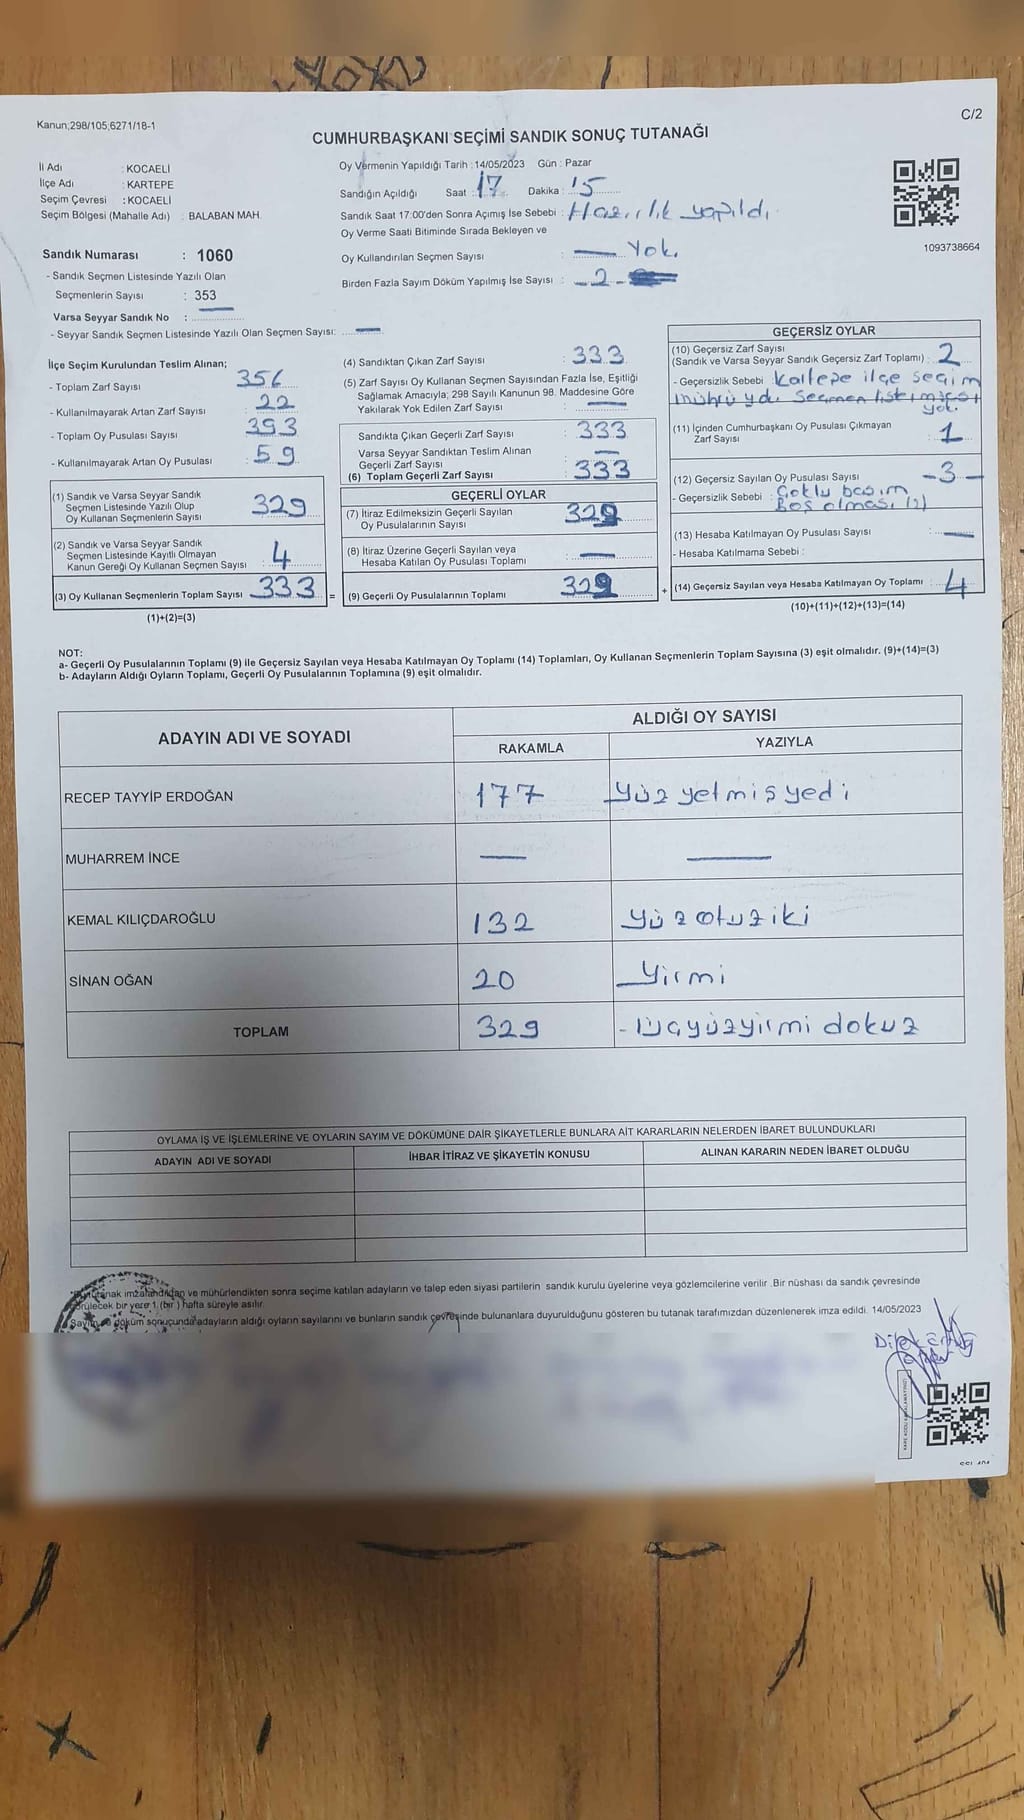 Kanun;298/105;6271/18-1
C/2
CUMHURBAŞKANI SEÇİMİ SANDIK SONUÇ TUTANAĞI
İl Adı : KOCAELİ
İlçe Adı : KARTEPE
Seçim Çevresi : KOCAELİ
Seçim Bölgesi (Mahalle Adı) : BALABAN MAH.
Oy Vermenin Yapıldığı Tarih : 14/05/2023 Gün : Pazar
Sandığın Açıldığı Saat : 17 Dakika : 15
Sandık Saat 17:00'den Sonra Açımış İse Sebebi : Hazırlık yapıldı.
Oy Verme Saati Bitiminde Sırada Bekleyen ve
Oy Kullandırılan Seçmen Sayısı : — Yok.
Birden Fazla Sayım Döküm Yapılmış İse Sayısı : -2-
1093738664
Sandık Numarası : 1060
- Sandık Seçmen Listesinde Yazılı Olan
Seçmenlerin Sayısı : 353
Varsa Seyyar Sandık No : —
- Seyyar Sandık Seçmen Listesinde Yazılı Olan Seçmen Sayısı: —
İlçe Seçim Kurulundan Teslim Alınan;
- Toplam Zarf Sayısı : 356
- Kullanılmayarak Artan Zarf Sayısı : 22
- Toplam Oy Pusulası Sayısı : 393
- Kullanılmayarak Artan Oy Pusulası : 59
(1) Sandık ve Varsa Seyyar Sandık
Seçmen Listesinde Yazılı Olup
Oy Kullanan Seçmenlerin Sayısı : 329
(2) Sandık ve Varsa Seyyar Sandık
Seçmen Listesinde Kayıtlı Olmayan
Kanun Gereği Oy Kullanan Seçmen Sayısı : 4
(3) Oy Kullanan Seçmenlerin Toplam Sayısı : 333 =
(1)+(2)=(3)
(4) Sandıktan Çıkan Zarf Sayısı : 333
(5) Zarf Sayısı Oy Kullanan Seçmen Sayısından Fazla İse, Eşitliği
Sağlamak Amacıyla; 298 Sayılı Kanunun 98. Maddesine Göre
Yakılarak Yok Edilen Zarf Sayısı : —
Sandıkta Çıkan Geçerli Zarf Sayısı : 333
Varsa Seyyar Sandıktan Teslim Alınan
Geçerli Zarf Sayısı : —
(6) Toplam Geçerli Zarf Sayısı : 333
GEÇERLİ OYLAR
(7) İtiraz Edilmeksizin Geçerli Sayılan
Oy Pusulalarının Sayısı : 329
(8) İtiraz Üzerine Geçerli Sayılan veya
Hesaba Katılan Oy Pusulası Toplamı : —
(9) Geçerli Oy Pusulalarının Toplamı : 329 +
GEÇERSİZ OYLAR
(10) Geçersiz Zarf Sayısı
(Sandık ve Varsa Seyyar Sandık Geçersiz Zarf Toplamı) : 2
- Geçersizlik Sebebi : ilçe seçim
yok.
(11) İçinden Cumhurbaşkanı Oy Pusulası Çıkmayan
Zarf Sayısı : 1
(12) Geçersiz Sayılan Oy Pusulası Sayısı : -3-
- Geçersizlik Sebebi : Çoklu basım
Boş olması (2)
(13) Hesaba Katılmayan Oy Pusulası Sayısı : —
- Hesaba Katılmama Sebebi :
(14) Geçersiz Sayılan veya Hesaba Katılmayan Oy Toplamı : 4
(10)+(11)+(12)+(13)=(14)
NOT:
a- Geçerli Oy Pusulalarının Toplamı (9) ile Geçersiz Sayılan veya Hesaba Katılmayan Oy Toplamı (14) Toplamları, Oy Kullanan Seçmenlerin Toplam Sayısına (3) eşit olmalıdır. (9)+(14)=(3)
b- Adayların Aldığı Oyların Toplamı, Geçerli Oy Pusulalarının Toplamına (9) eşit olmalıdır.
ADAYIN ADI VE SOYADI
ALDIĞI OY SAYISI
RAKAMLA YAZIYLA
RECEP TAYYİP ERDOĞAN 177 yüz yetmiş yedi
MUHARREM İNCE — —
KEMAL KILIÇDAROĞLU 132 yüz otuz iki
SİNAN OĞAN 20 Yirmi
TOPLAM 329 - Üçyüzyirmi dokuz
OYLAMA İŞ VE İŞLEMLERİNE VE OYLARIN SAYIM VE DÖKÜMÜNE DAİR ŞİKAYETLERLE BUNLARA AİT KARARLARIN NELERDEN İBARET BULUNDUKLARI
ADAYIN ADI VE SOYADI İHBAR İTİRAZ VE ŞİKAYETİN KONUSU ALINAN KARARIN NEDEN İBARET OLDUĞU
imzalandıktan ve mühürlendikten sonra seçime katılan adayların ve talep eden siyasi partilerin sandık kurulu üyelerine veya gözlemcilerine verilir .Bir nüshası da sandık çevresinde
görülecek bir yere 1 (bir ) hafta süreyle asılır.
döküm sonucunda adayların aldığı oyların sayılarını ve bunların sandık çevresinde bulunanlara duyurulduğunu gösteren bu tutanak tarafımızdan düzenlenerek imza edildi. 14/05/2023